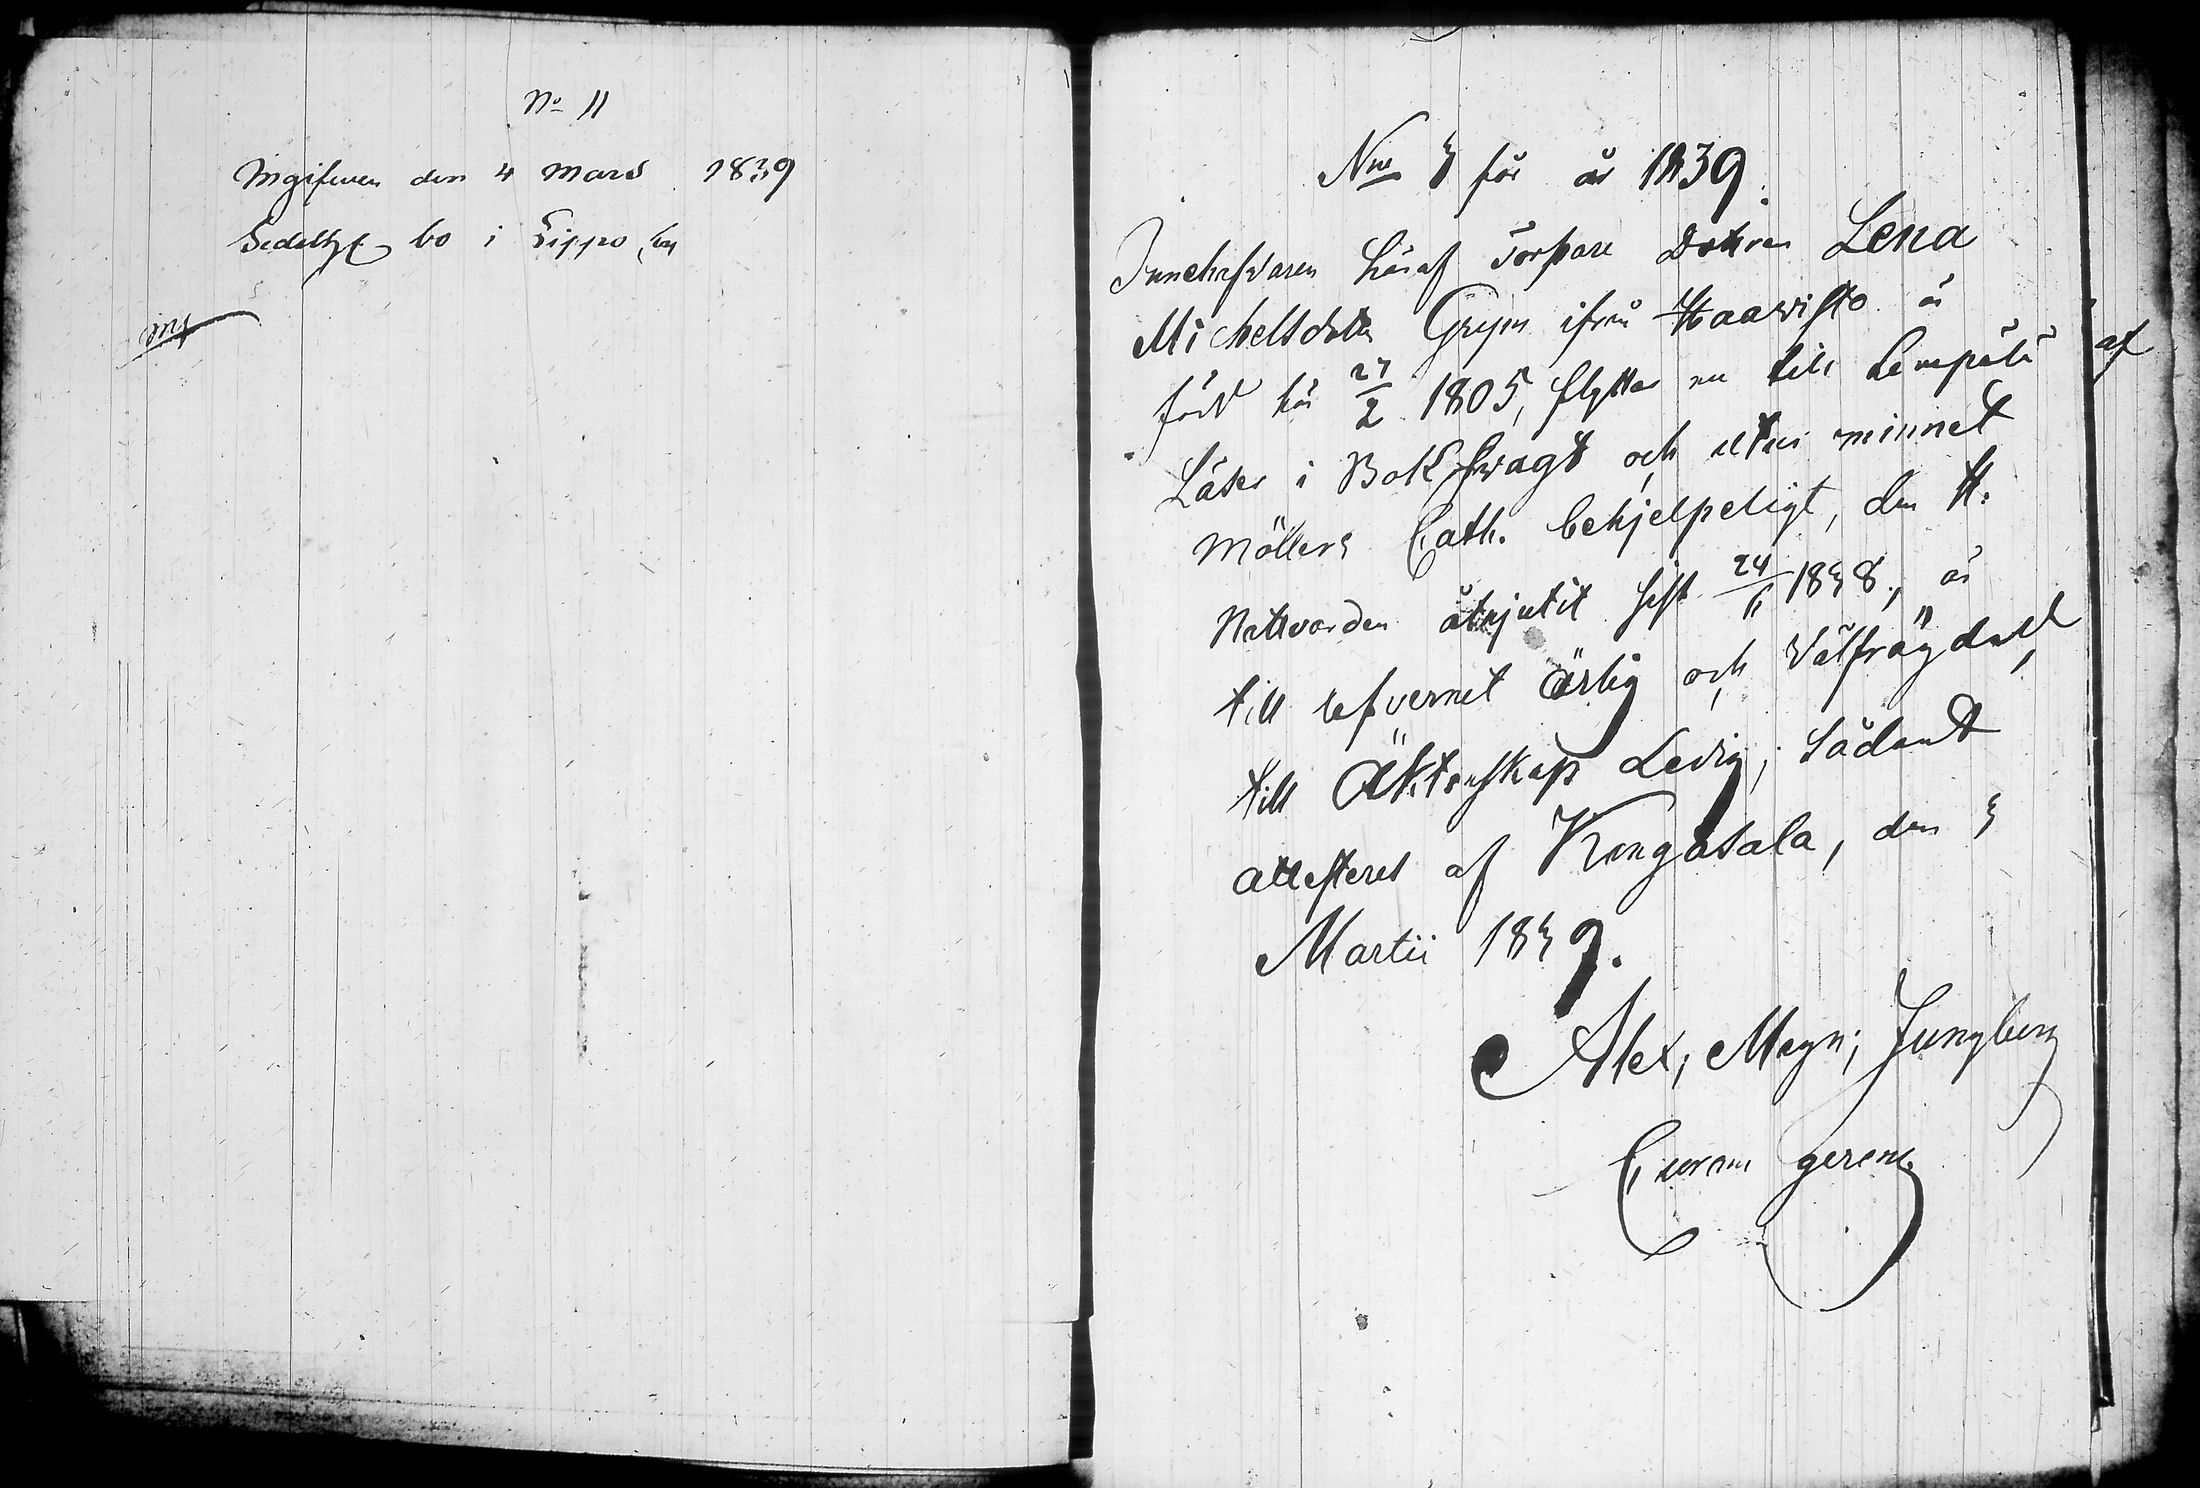 No 11
Ingifven den 4 Mars 1839
bo i Sippo by
Nro 3 för år 1839.
Innehafvaren häraf Torpare Dottren Lena
Michelsdotter Grym ifrån Haawisto är
född här 27/2 1805, flyttar nu till Lempälä
Läser i Bok svagt och utur minnet
Möllers Cath. behjelpeligt, den H.
Nattvarden åtnjutit sist 24/6 1838, är
till lefvernet ärlig och välfrägdad,
till Äktenskap Ledig; sådant
attesteret af Kangasala, den 3
Martii 1839.
Alex; Magn; Ljungberg
Curam gerens
af